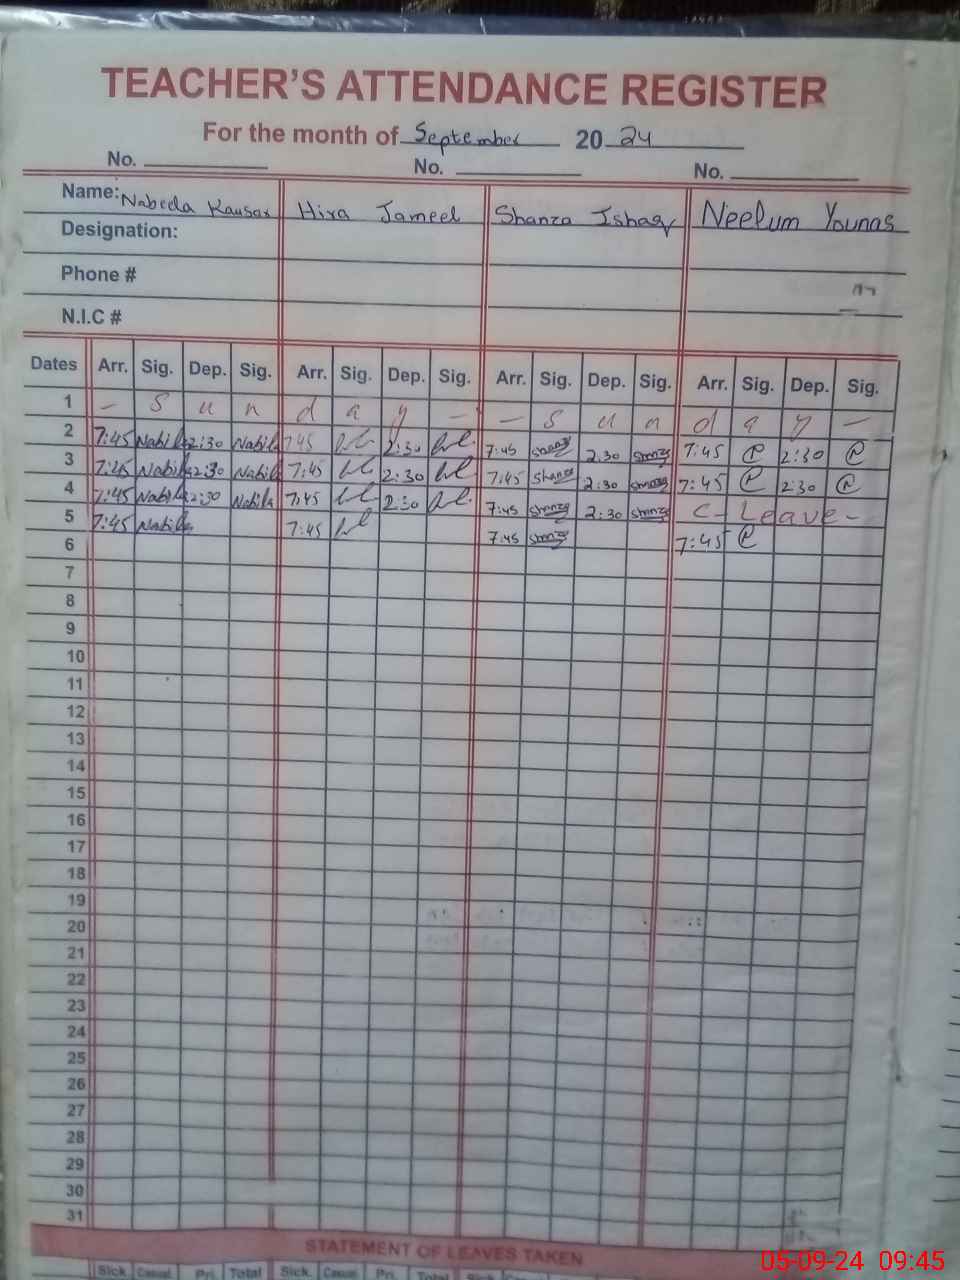 TEACHER'S ATTENDANCE REGISTER
For the month of September 2024
No. No. No.
Name: Nabeela Kausar Hira Jameel Shanza Ishaq Neelum Younas
Designation:
Phone #
N.I.C #
Dates Arr. Sig. Dep. Sig. Arr. Sig. Dep. Sig. Arr. Sig. Dep. Sig. Arr. Sig. Dep. Sig.
1 - S u n d a y - - S u n d a y -
2 7:45 Nabila 2:30 Nabila 7:45 2:30 7:45 Shanza 2:30 Shanza 7:45 2:30
3 7:45 Nabila 2:30 Nabila 7:45 2:30 7:45 Shanza 2:30 Shanza 7:45 2:30
4 7:45 Nabila 2:30 Nabila 7:45 2:30 7:45 Shanza 2:30 Shanza C - Leave -
5 7:45 Nabila 7:45 7:45 Shanza 7:45
6
7
8
9
10
11
12
13
14
15
16
17
18
19
20
21
22
23
24
25
26
27
28
29
30
31
STATEMENT OF LEAVES TAKEN
Sick Casual Pri. Total Sick. Casual Pri. Total Sick.
05-09-24 09:45